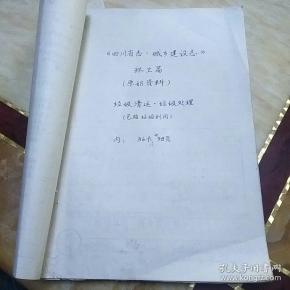 《四川省志·城乡建设志》
环卫篇
(原始资料)
垃圾清运·垃圾处理
(包括垃圾利用)
内:
孔夫子旧书网